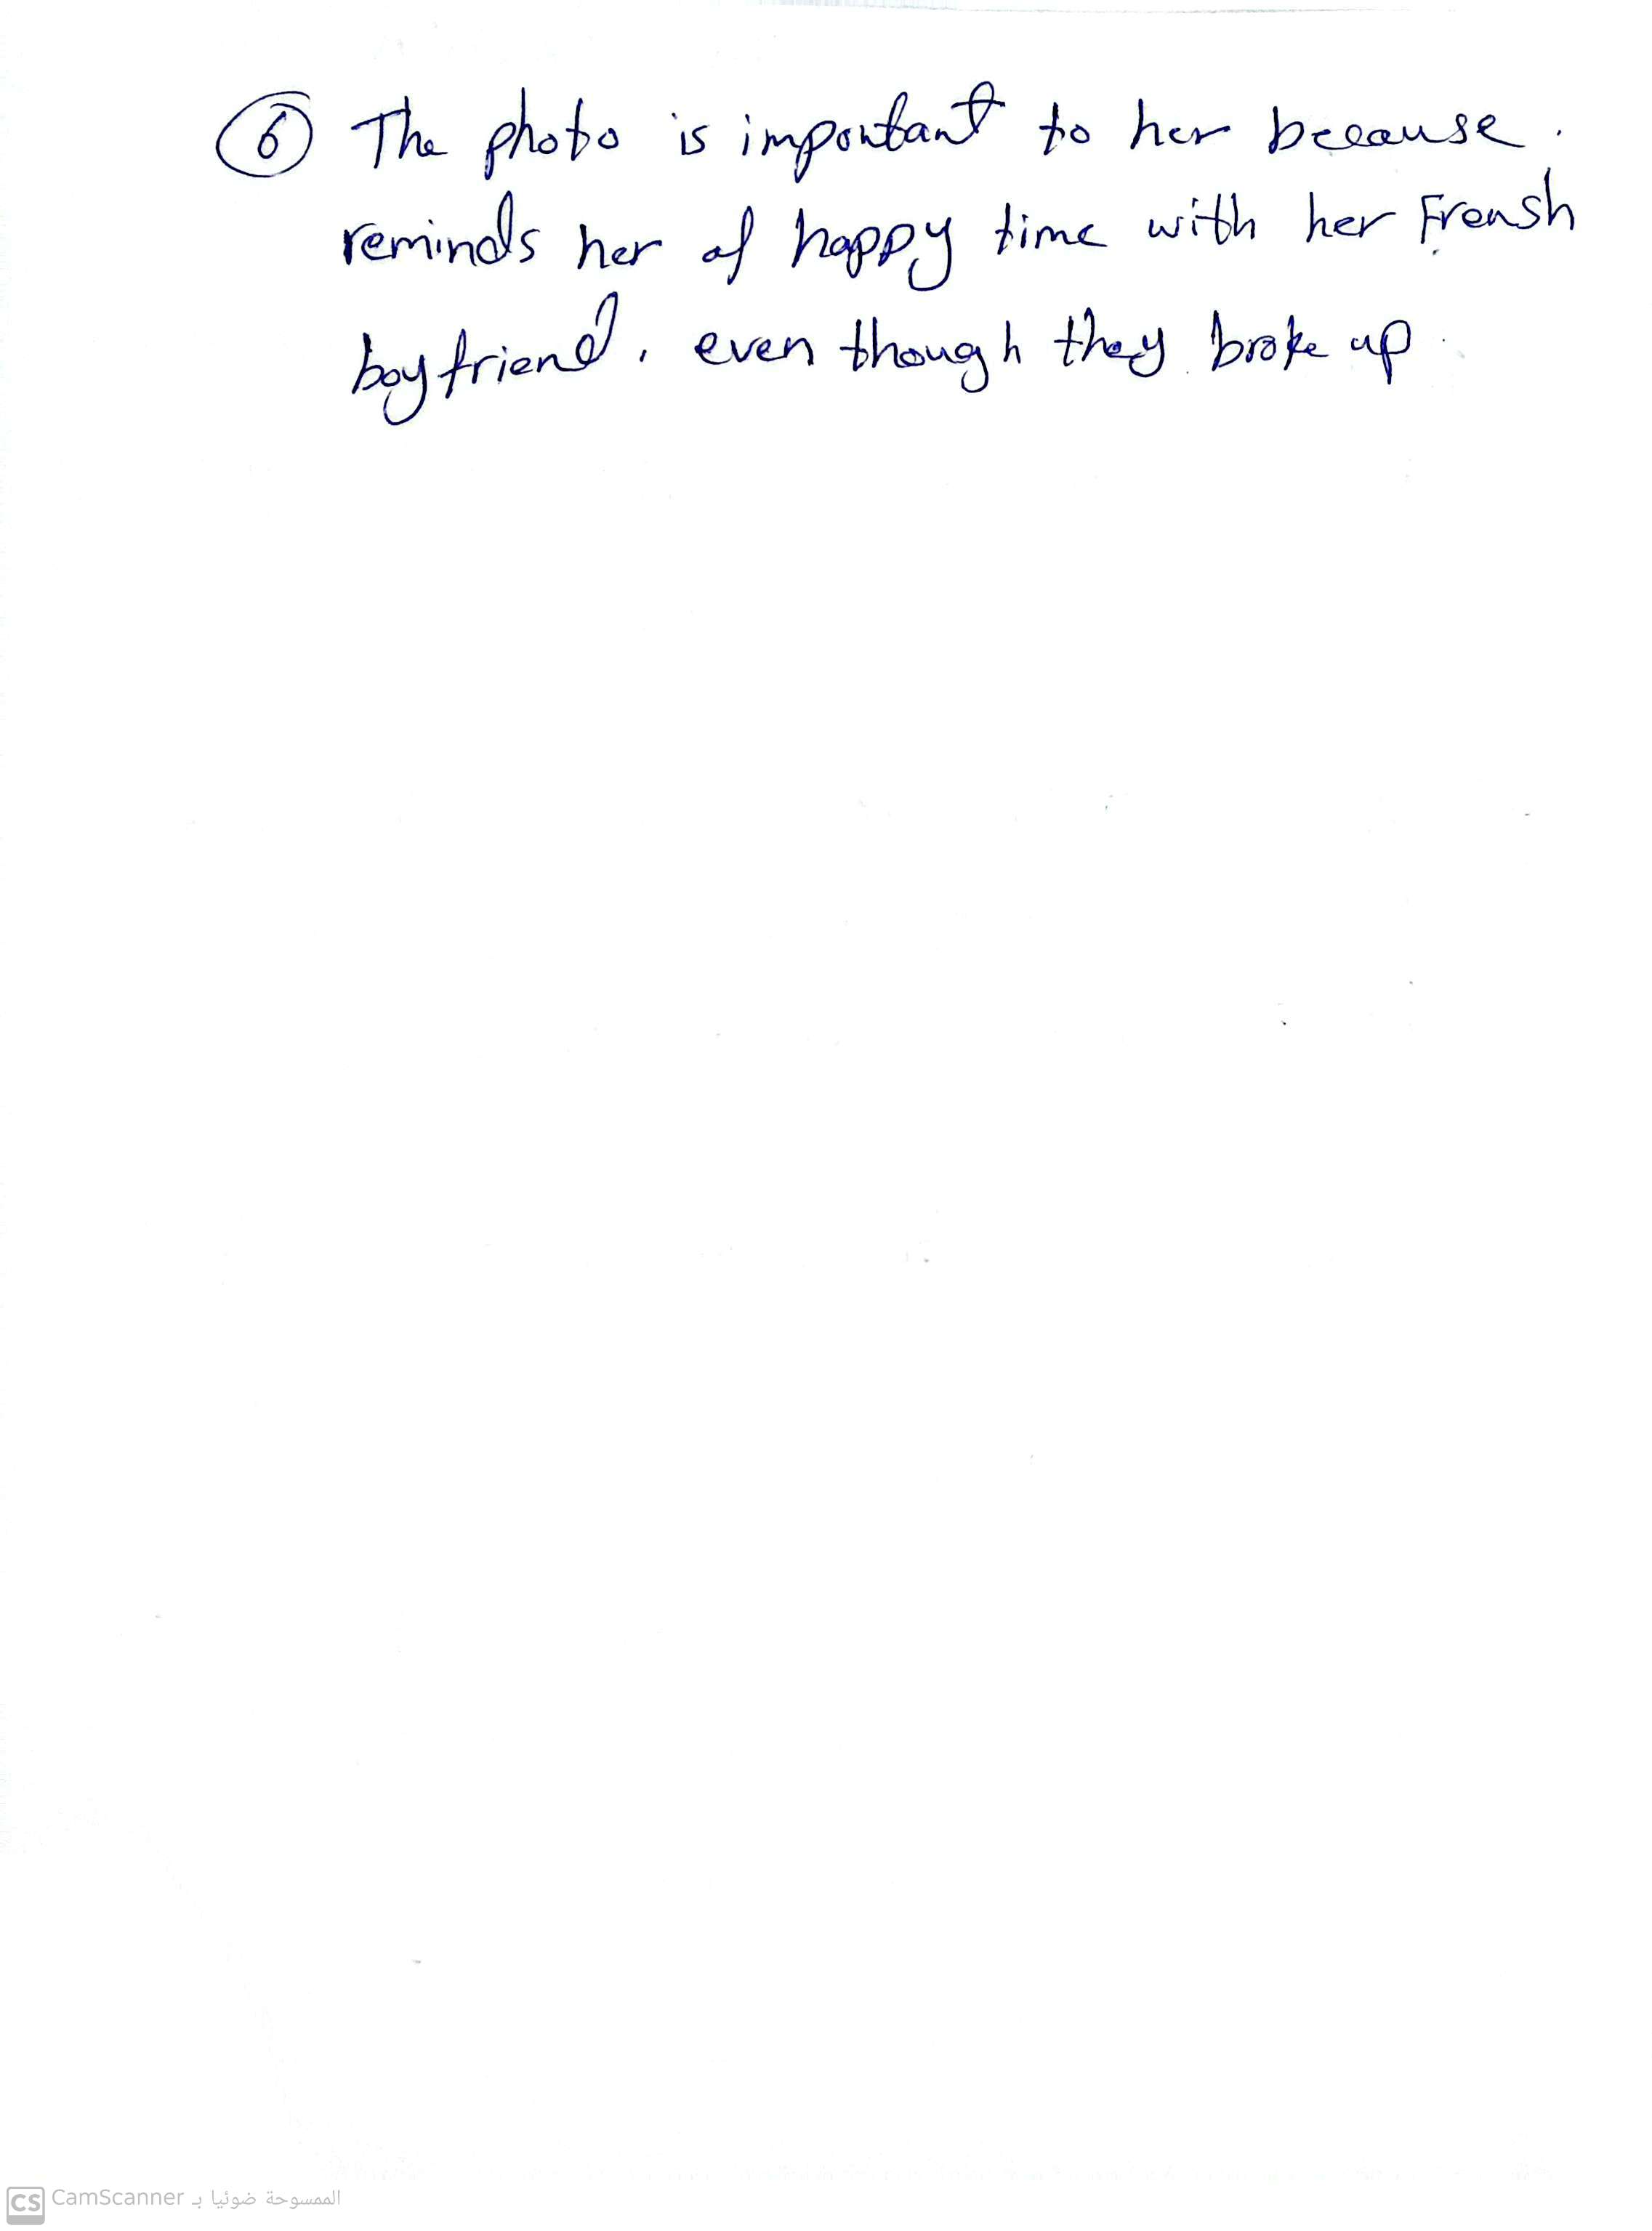 6 The photo is important to her because.
reminds her of happy time with her Frensh
boyfriend, even though they broke up.
CS CamScanner الممسوحة ضوئيا بـ